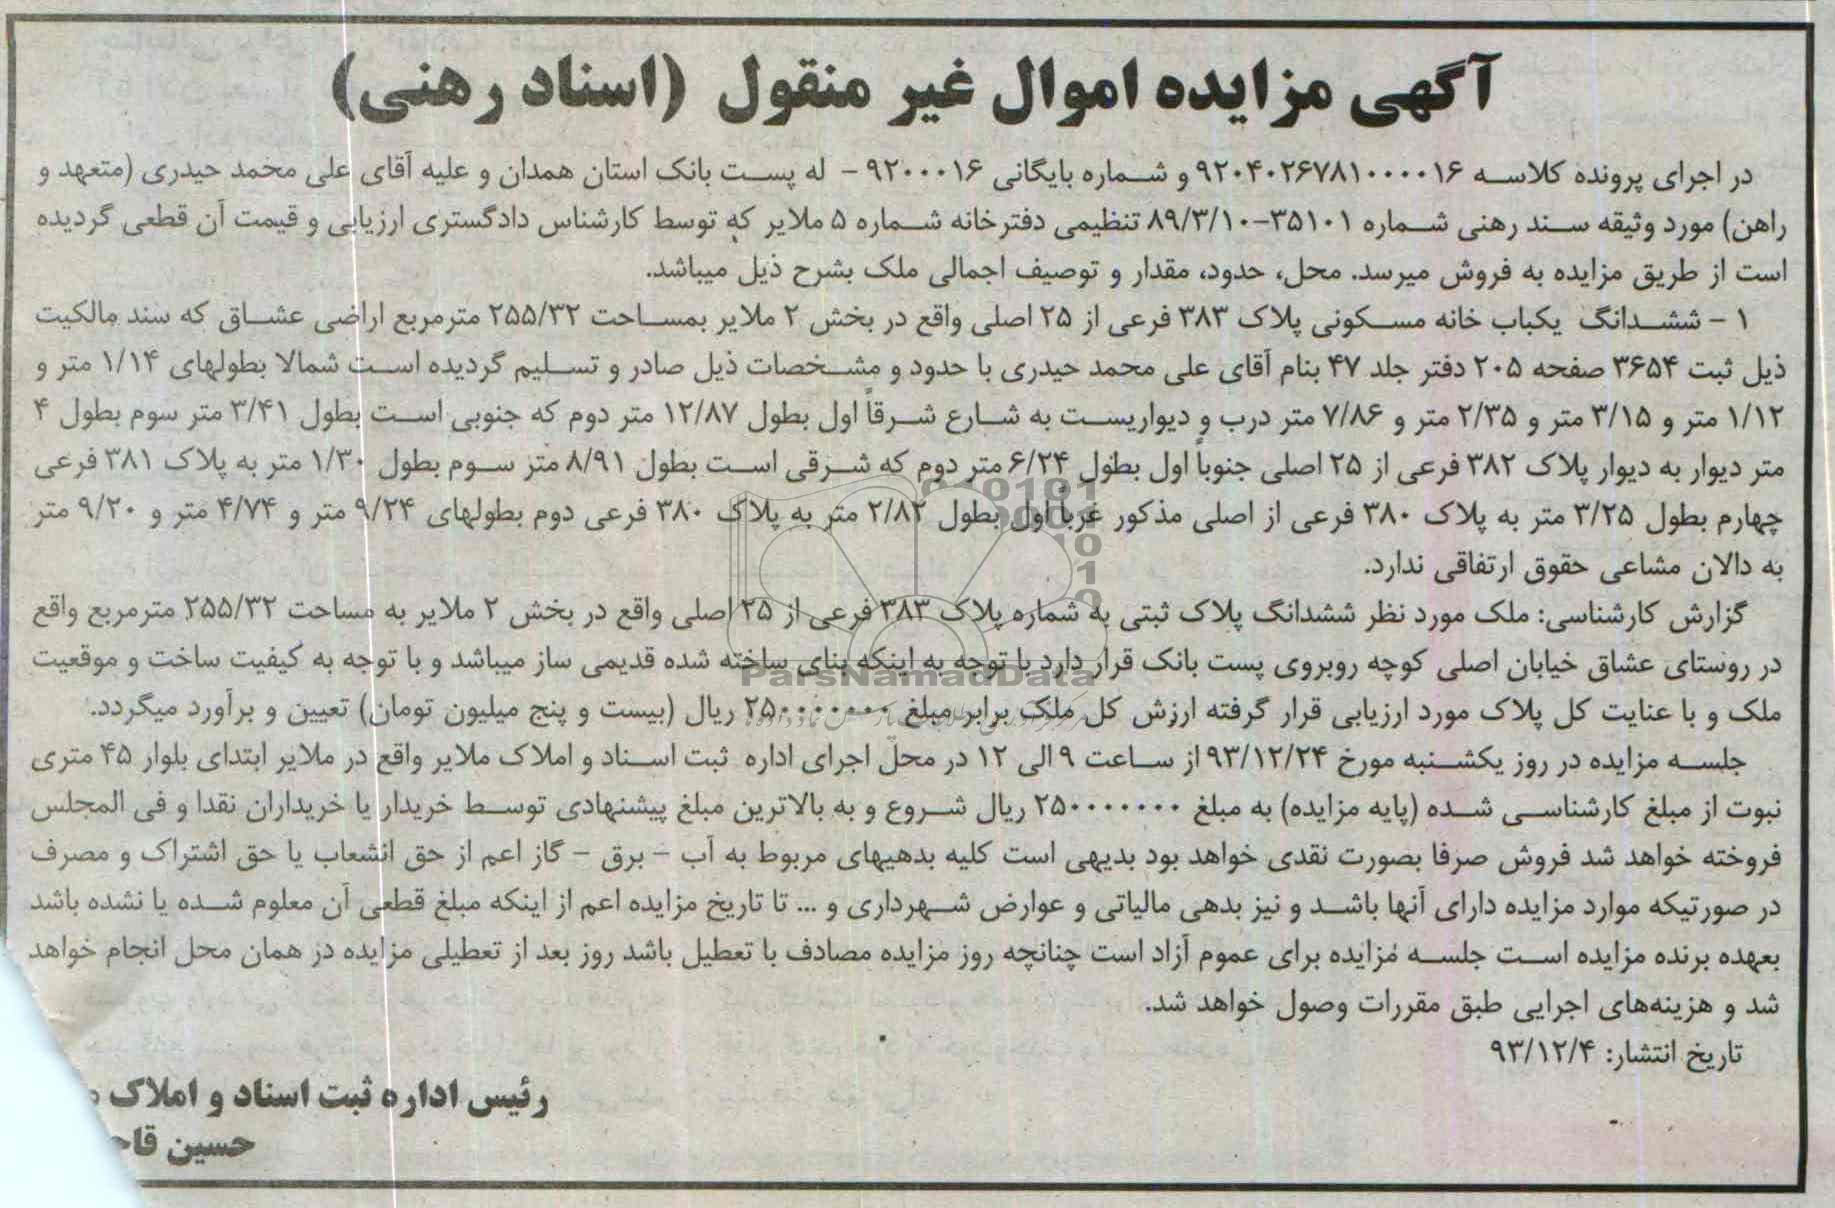 آگهی مزایده اموال غیر منقول (اسناد رهنی)
در اجرای پرونده کلاسه ۹۲۰۴۰۲۶۷۸۱۰۰۰۰۱۶ و شماره بایگانی ۹۲۰۰۰۱۶ - له پست بانک استان همدان و علیه آقای علی محمد حیدری (متعهد و
راهن) مورد وثیقه سند رهنی شماره ۳۵۱۰۱-۸۹/۳/۱۰ تنظیمی دفترخانه شماره ۵ ملایر که توسط کارشناس دادگستری ارزیابی و قیمت آن قطعی گردیده
است از طریق مزایده به فروش میرسد. محل، حدود، مقدار و توصیف اجمالی ملک بشرح ذیل میباشد.
۱ - ششدانگ یکباب خانه مسکونی پلاک ۳۸۳ فرعی از ۲۵ اصلی واقع در بخش ۲ ملایر بمساحت ۲۵۵/۳۲ مترمربع اراضی عشاق که سند مالکیت
ذیل ثبت ۳۶۵۴ صفحه ۲۰۵ دفتر جلد ۴۷ بنام آقای علی محمد حیدری با حدود و مشخصات ذیل صادر و تسلیم گردیده است شمالا بطولهای ۱/۱۴ متر و
۱/۱۲ متر و ۳/۱۵ متر و ۲/۳۵ متر و ۷/۸۶ متر درب و دیواریست به شارع شرقاً اول بطول ۱۲/۸۷ متر دوم که جنوبی است بطول ۳/۴۱ متر سوم بطول ۴
متر دیوار به دیوار پلاک ۳۸۲ فرعی از ۲۵ اصلی جنوباً اول بطول ۶/۲۴ متر دوم که شرقی است بطول ۸/۹۱ متر سوم بطول ۱/۳۰ متر به پلاک ۳۸۱ فرعی
چهارم بطول ۳/۲۵ متر به پلاک ۳۸۰ فرعی از اصلی مذکور غربا اول بطول ۲/۸۲ متر به پلاک ۳۸۰ فرعی دوم بطولهای ۹/۲۴ متر و ۴/۷۴ متر و ۹/۲۰ متر
به دالان مشاعی حقوق ارتفاقی ندارد.
گزارش کارشناسی: ملک مورد نظر ششدانگ پلاک ثبتی به شماره پلاک ۳۸۳ فرعی از ۲۵ اصلی واقع در بخش ۲ ملایر به مساحت ۲۵۵/۳۲ مترمربع واقع
در روستای عشاق خیابان اصلی کوچه روبروی پست بانک قرار دارد با توجه به اینکه بنای ساخته شده قدیمی ساز میباشد و با توجه به کیفیت ساخت و موقعیت
ملک و با عنایت کل پلاک مورد ارزیابی قرار گرفته ارزش کل ملک برابر مبلغ ۲۵۰۰۰۰۰۰۰ ریال (بیست و پنج میلیون تومان) تعیین و برآورد میگردد.
جلسه مزایده در روز یکشنبه مورخ ۹۳/۱۲/۲۴ از ساعت ۹ الی ۱۲ در محل اجرای اداره ثبت اسناد و املاک ملایر واقع در ملایر ابتدای بلوار ۴۵ متری
نبوت از مبلغ کارشناسی شده (پایه مزایده) به مبلغ ۲۵۰۰۰۰۰۰۰ ریال شروع و به بالاترین مبلغ پیشنهادی توسط خریدار یا خریداران نقدا و فی المجلس
فروخته خواهد شد فروش صرفا بصورت نقدی خواهد بود بدیهی است کلیه بدهیهای مربوط به آب - برق - گاز اعم از حق انشعاب یا حق اشتراک و مصرف
در صورتیکه موارد مزایده دارای آنها باشد و نیز بدهی مالیاتی و عوارض شهرداری و ... تا تاریخ مزایده اعم از اینکه مبلغ قطعی آن معلوم شده یا نشده باشد
بعهده برنده مزایده است جلسه مزایده برای عموم آزاد است چنانچه روز مزایده مصادف با تعطیل باشد روز بعد از تعطیلی مزایده در همان محل انجام خواهد
شد و هزینه‌های اجرایی طبق مقررات وصول خواهد شد.
تاریخ انتشار: ۹۳/۱۲/۴
رئیس اداره ثبت اسناد و املاک
حسین
ParsNamadData